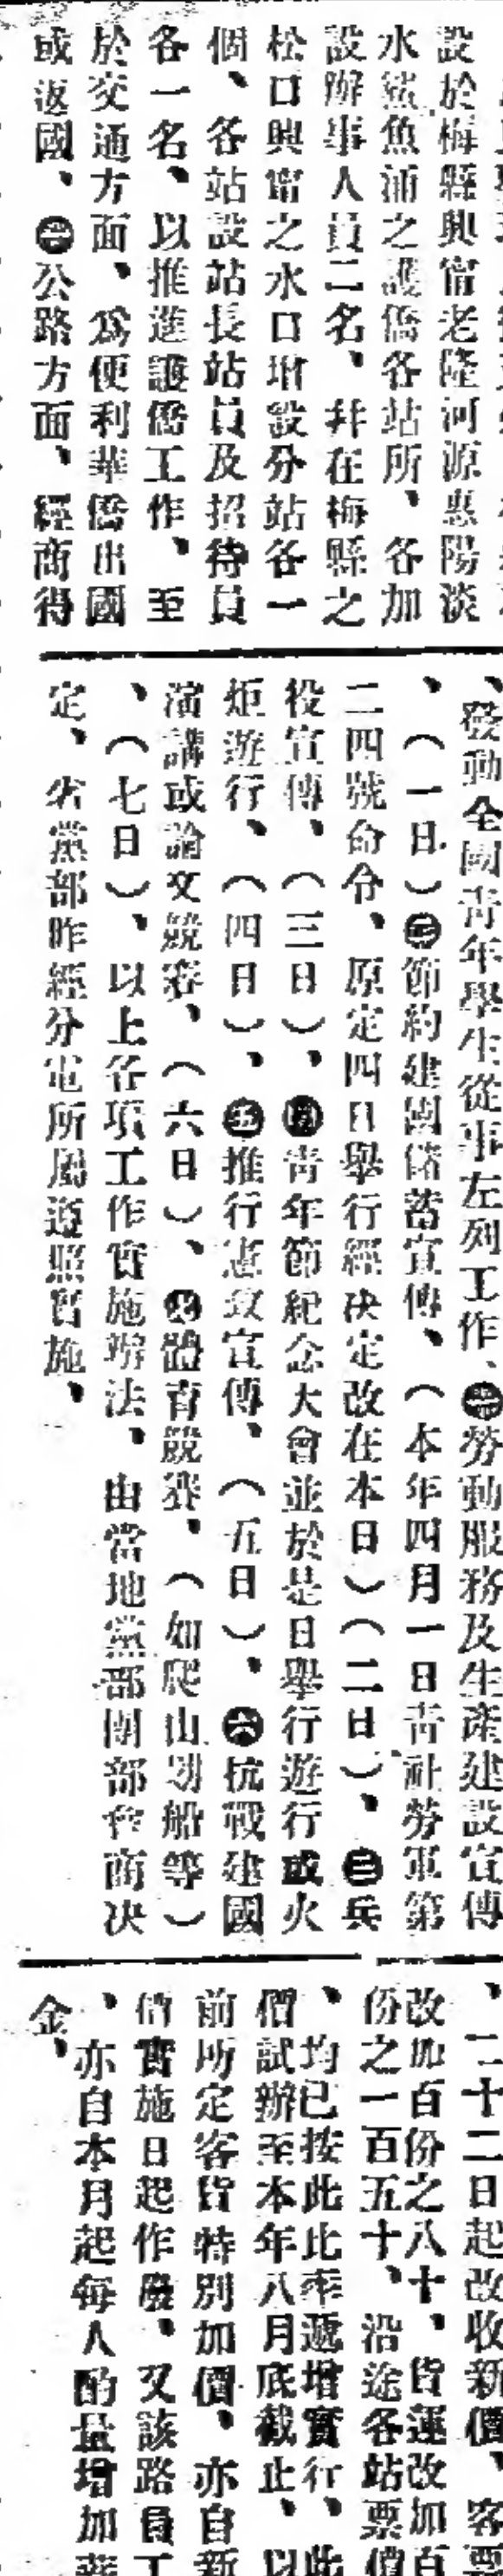 設於梅縣興甯老隆河源惠陽淡
水鯊魚涌之護僑各站所、各加
設辦事人員二名、幷在梅縣之
松口興甯之水口增設分站各一
個、各站設站長站員及招待員
各一名、以推進護僑工作、至
於交通方面、爲便利華僑出國
或返國、㊁公路方面、經商得
、發動全國青年學生從事左列工作、㊀勞動服務及生產建設宣傳
、（一日）㊁節約建國儲蓄宣傳、（本年四月一日青社勞軍第
二四號命令、原定四日舉行經决定改在本日）（二日）、㊂兵
役宣傳、（三日）、㊃青年節紀念大會並於是日舉行遊行或火
炬遊行、（四日）、㊄推行憲政宣傳、（五日）、㊅抗戰建國
演講或論文競賽、（六日）、㊆體育競賽、（如爬山划船等）
、（七日）、以上各項工作實施辦法、由當地黨部團部會商决
定、省黨部昨經分電所屬遵照實施、
、二十二日起改收新價、客票
改加百份之八十、貨運改加百
份之一百五十、沿途各站票價
、均已按此比率遞增實行、此
價試辦至本年八月底截止、以
前所定客貨特別加價、亦自新
價實施日起作廢、又該路員工
、亦自本月起每人酌量增加薪
金、